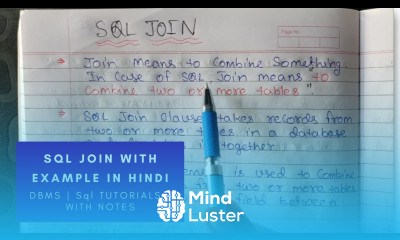 SQL JOIN
Page No.
→ Join means to Combine Something.
In Case of SQL, Join means "to
Combine two or more tables".
→ SQL Join Clause takes records from
two or more tables in a database
together.
is used to Combine
two or more tables
field between
SQL JOIN WITH
EXAMPLE IN HINDI
DBMS | Sql TUTORIALS
WITH NOTES
Mind
Luster